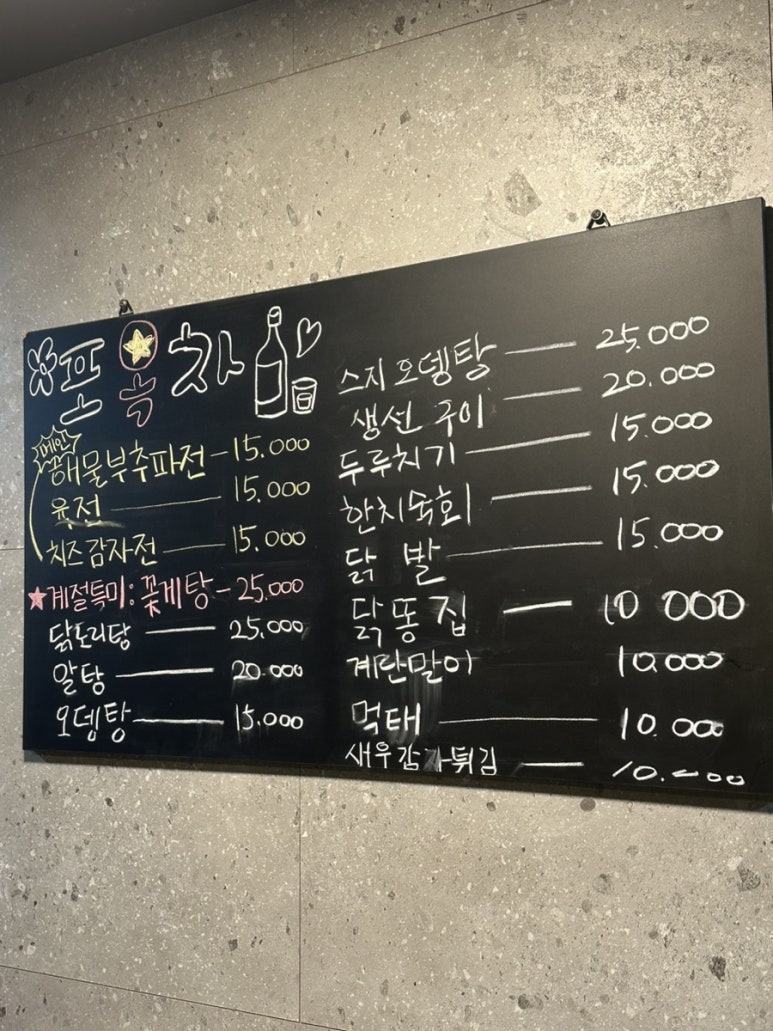 포★차
메인
해물부추파전 - 15.000
육전 — 15.000
치즈감자전 — 15.000
★계절특미: 꽃게탕 - 25.000
닭도리탕 — 25.000
알탕 — 20.000
오뎅탕 — 15.000
스지오뎅탕 — 25.000
생선 구이 — 20.000
두루치기 — 15.000
한치숙회 — 15.000
닭 발 — 15.000
닭똥집 — 10 000
계란말이 10.000
먹태 — 10.000
새우감자튀김 — 10.000